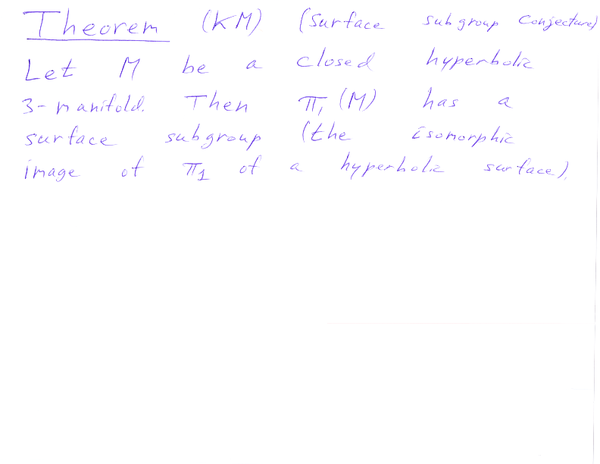 Theorem (KM) (Surface subgroup Conjecture)
Let M be a closed hyperbolic
3-manifold. Then π₁(M) has a
surface subgroup (the isomorphic
image of π₁ of a hyperbolic surface).